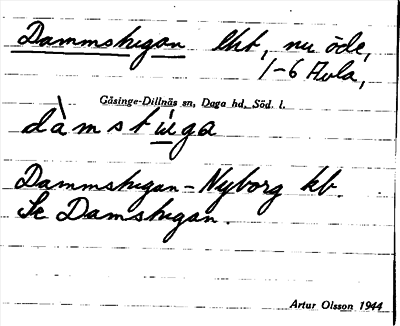 Dammstugan lht, nu öde,
1-6 Avla,
Gåsinge-Dillnäs sn, Daga hd, Söd. l.
dàmstúga
Dammstugan - Nyborg kb.
Se Damstugan.
Artur Olsson 1944